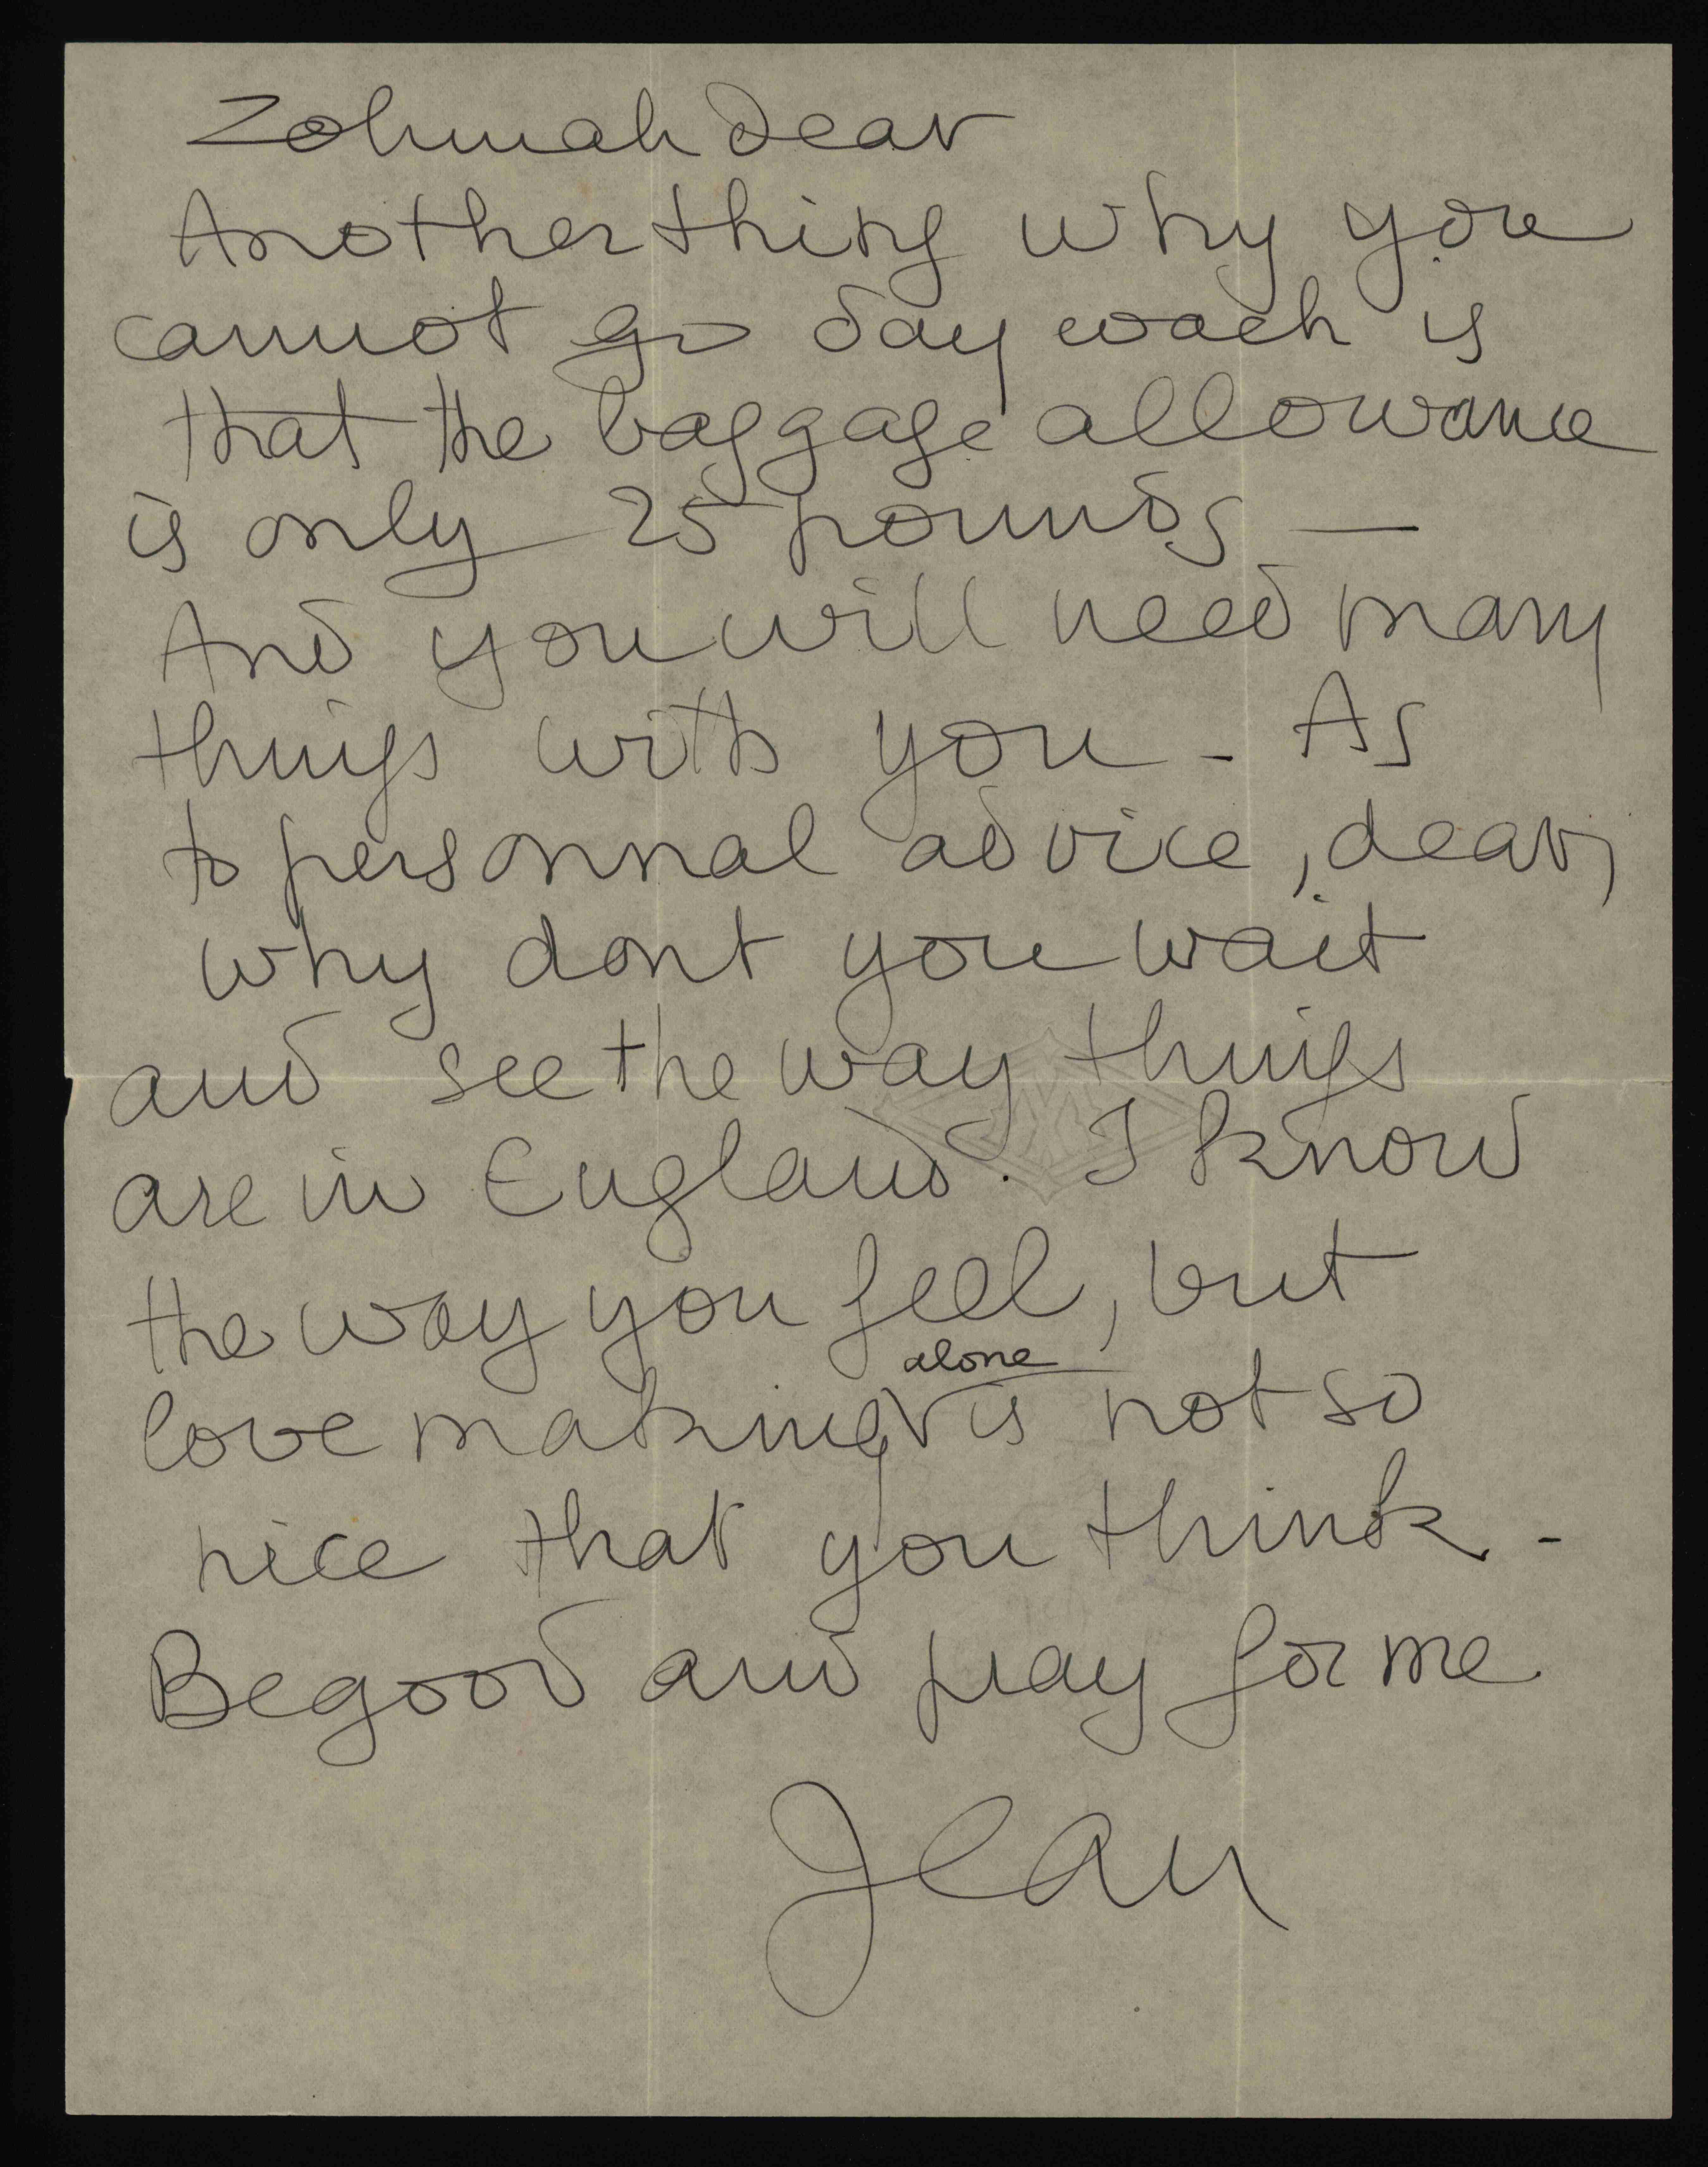 Zohmah dear
Another thing why you
cannot go day coach is
that the baggage allowance
is only 25 pounds —
And you will need many
things with you - As
to personnal advice, dear,
why dont you wait
and see the way things
are in England. I know
the way you feel, but
love making alone is not so
nice that you think -
Be good and pray for me
Jean